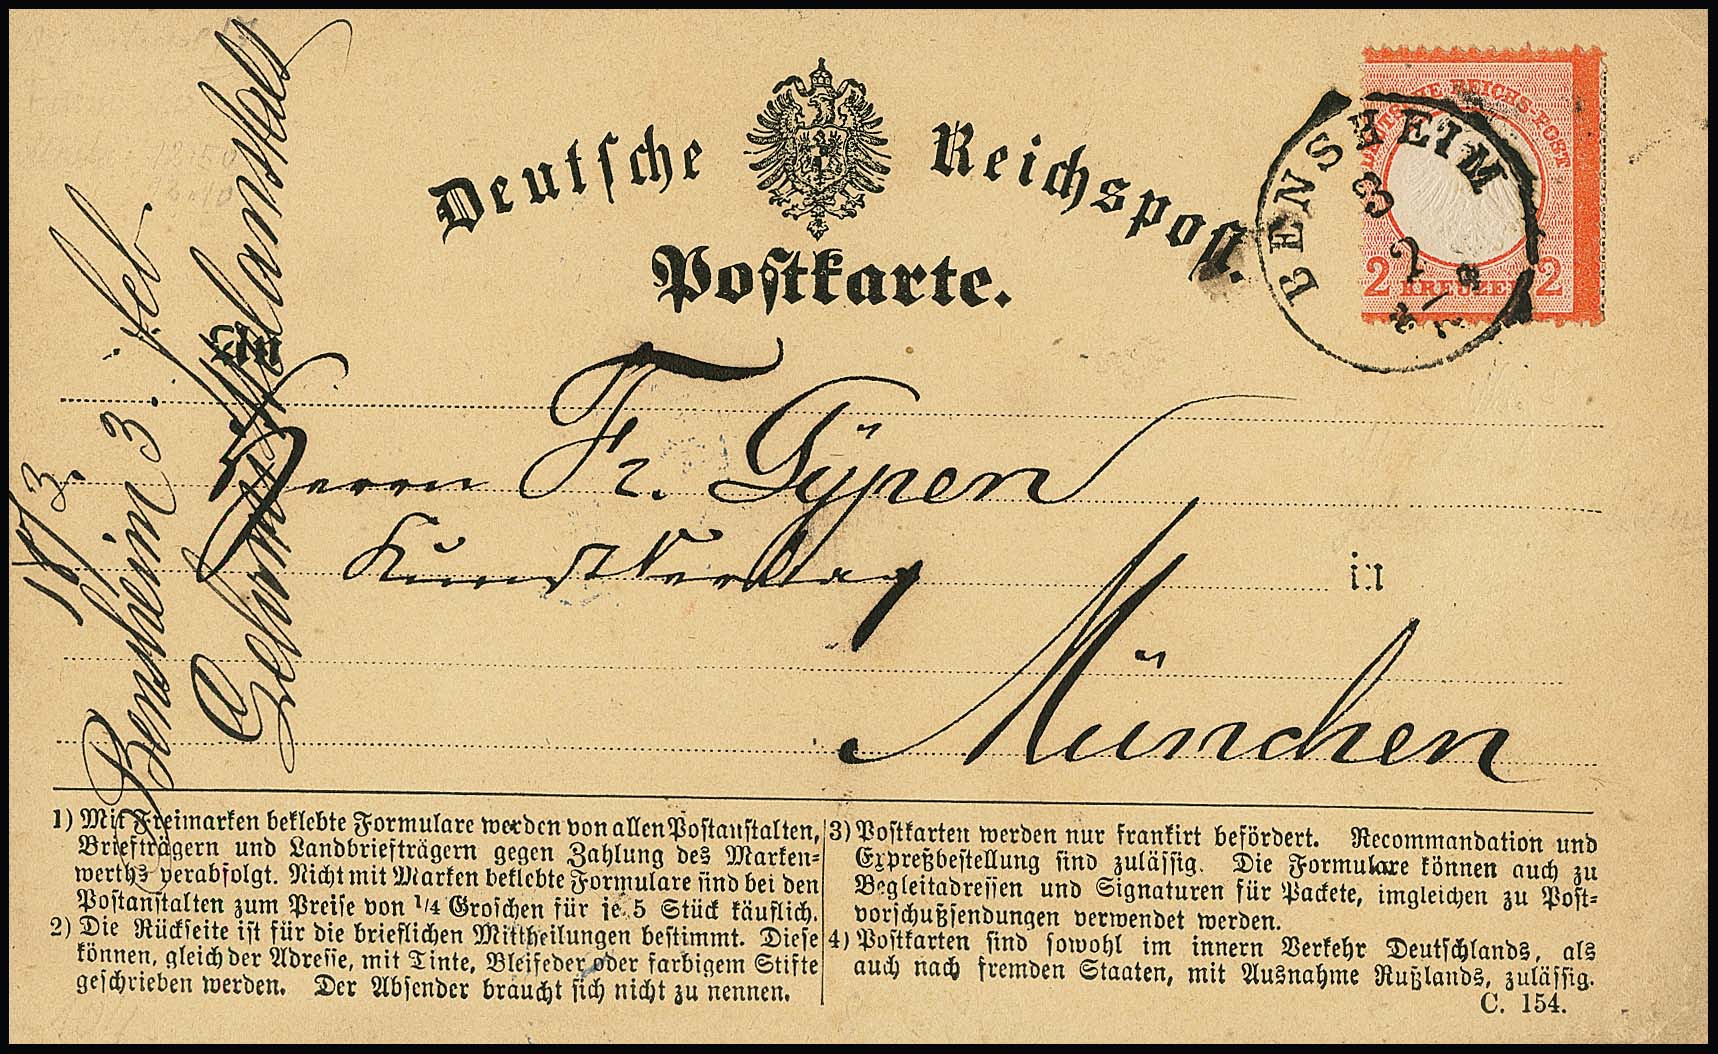 Deutsche Reichspost.
Postkarte.
DEUTSCHE REICHS-POST
2 KREUZER 2
BENSHEIM
3
2
An
Herrn Fr. Gÿpen
Kunstverlag
in
München
Bensheim 3. feb
18/3.
1) Mit Freimarken beklebte Formulare werden von allen Postanstalten,
Briefträgern und Landbriefträgern gegen Zahlung des Marken-
werths verabfolgt. Nicht mit Marken beklebte Formulare sind bei den
Postanstalten zum Preise von 1/4 Groschen für je 5 Stück käuflich.
2) Die Rückseite ist für die brieflichen Mittheilungen bestimmt. Diese
können, gleich der Adresse, mit Tinte, Bleifeder oder farbigem Stifte
geschrieben werden. Der Absender braucht sich nicht zu nennen.
3) Postkarten werden nur frankirt befördert. Recommandation und
Expreßbestellung sind zulässig. Die Formulare können auch zu
Begleitadressen und Signaturen für Packete, imgleichen zu Post-
vorschußsendungen verwendet werden.
4) Postkarten sind sowohl im innern Verkehr Deutschlands, als
auch nach fremden Staaten, mit Ausnahme Rußlands, zulässig.
C. 154.